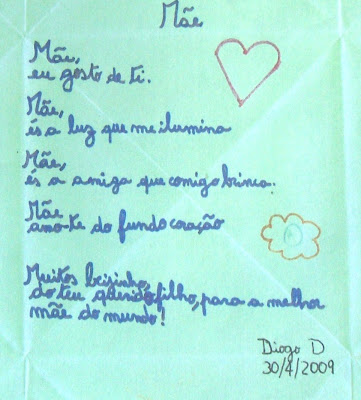 Mãe
Mãe,
eu gosto de ti.
Mãe,
és a luz que me ilumina
Mãe,
és a amiga que comigo brinca.
Mãe
amo-te do fundo coração
Muitos beijinho,
do teu querido filho, para a melhor
mãe do mundo!
Diogo D
30/4/2009